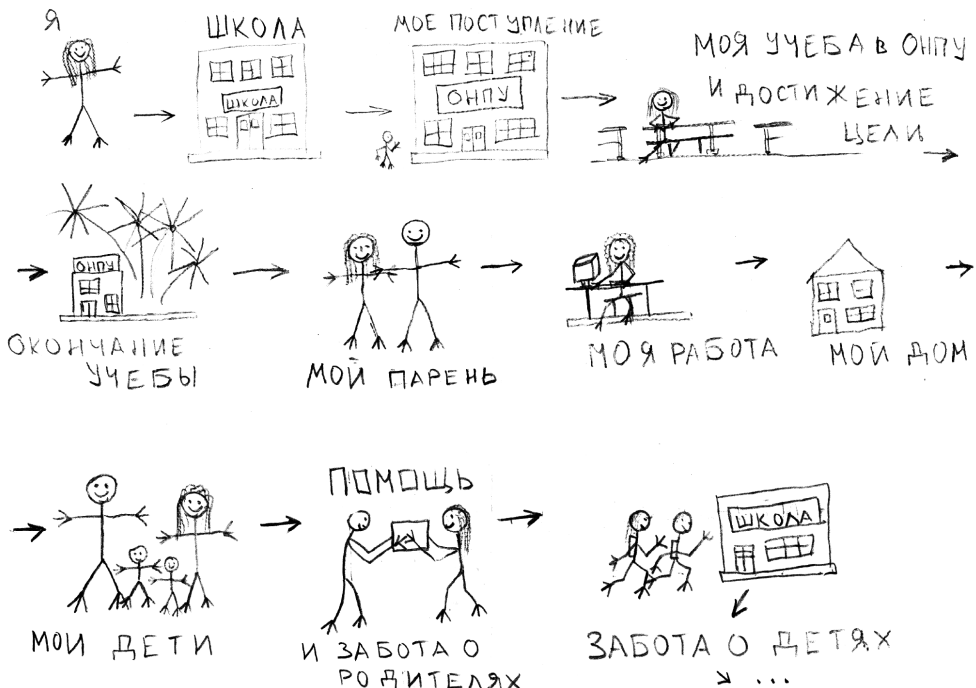 Я
ШКОЛА
ШКОЛА
МОЕ ПОСТУПЛЕНИЕ
ОНПУ
МОЯ УЧЕБА В ОНПУ
И ДОСТИЖЕНИЕ
ЦЕЛИ
ОНПУ
ОКОНЧАНИЕ
УЧЕБЫ
МОЙ ПАРЕНЬ
МОЯ РАБОТА
МОЙ ДОМ
МОИ ДЕТИ
ПОМОЩЬ
И ЗАБОТА О
РОДИТЕЛЯХ
ШКОЛА
ЗАБОТА О ДЕТЯХ
...